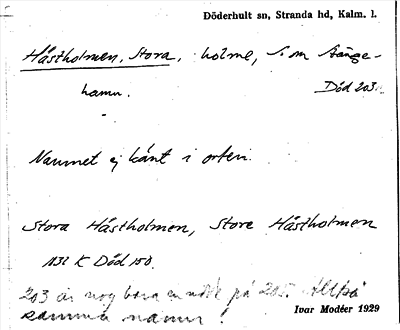 Döderhult sn, Stranda hd, Kalm. l.
Håstholmen, Stora, holme, S om Långe-
hamn. Död 203.
Namnet ej känt i orten.
Stora Håstholmen, Store Håstholmen
1832 K Död 150.
203 är nog bara en nöt på 205. Alltså
samma namn!
Ivar Modéer 1929